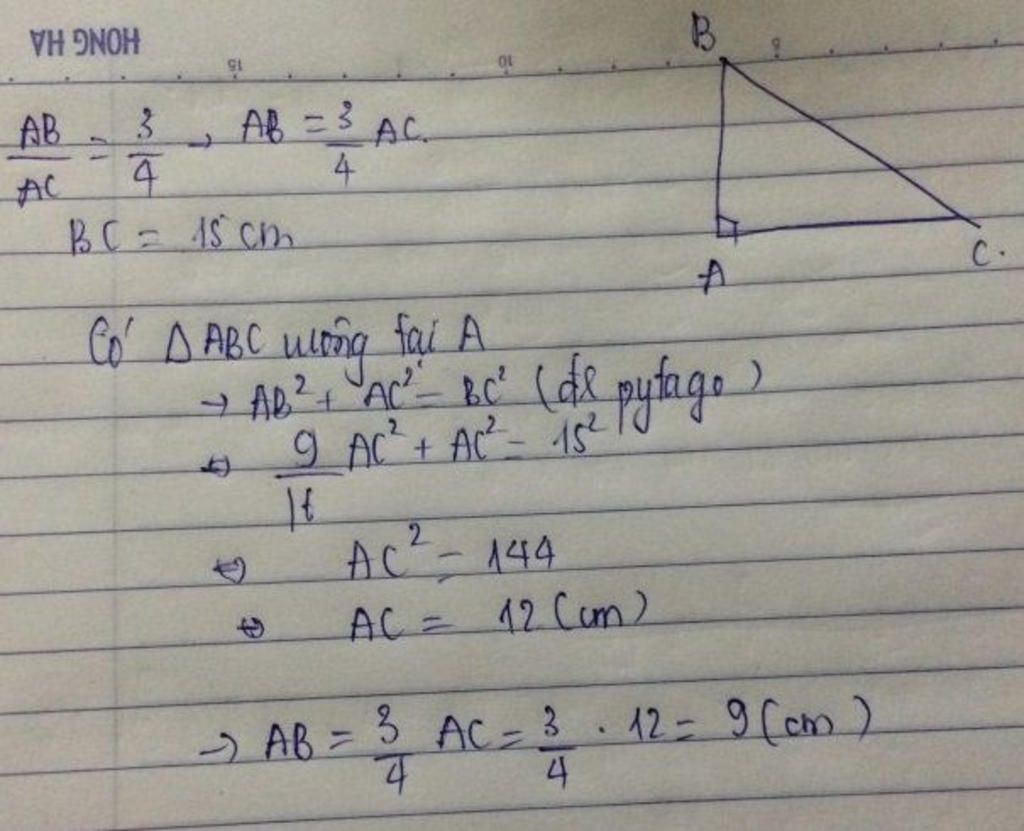 HONG HA
15 10 5
B
AB/AC = 3/4 → AB = 3/4 AC.
BC = 15 cm
A
C.
Có △ABC vuông tại A
→ AB² + AC² = BC² (đl pytago)
⇔ 9/16 AC² + AC² = 15²
⇔ AC² = 144
⇔ AC = 12 (cm)
→ AB = 3/4 AC = 3/4 . 12 = 9 (cm)